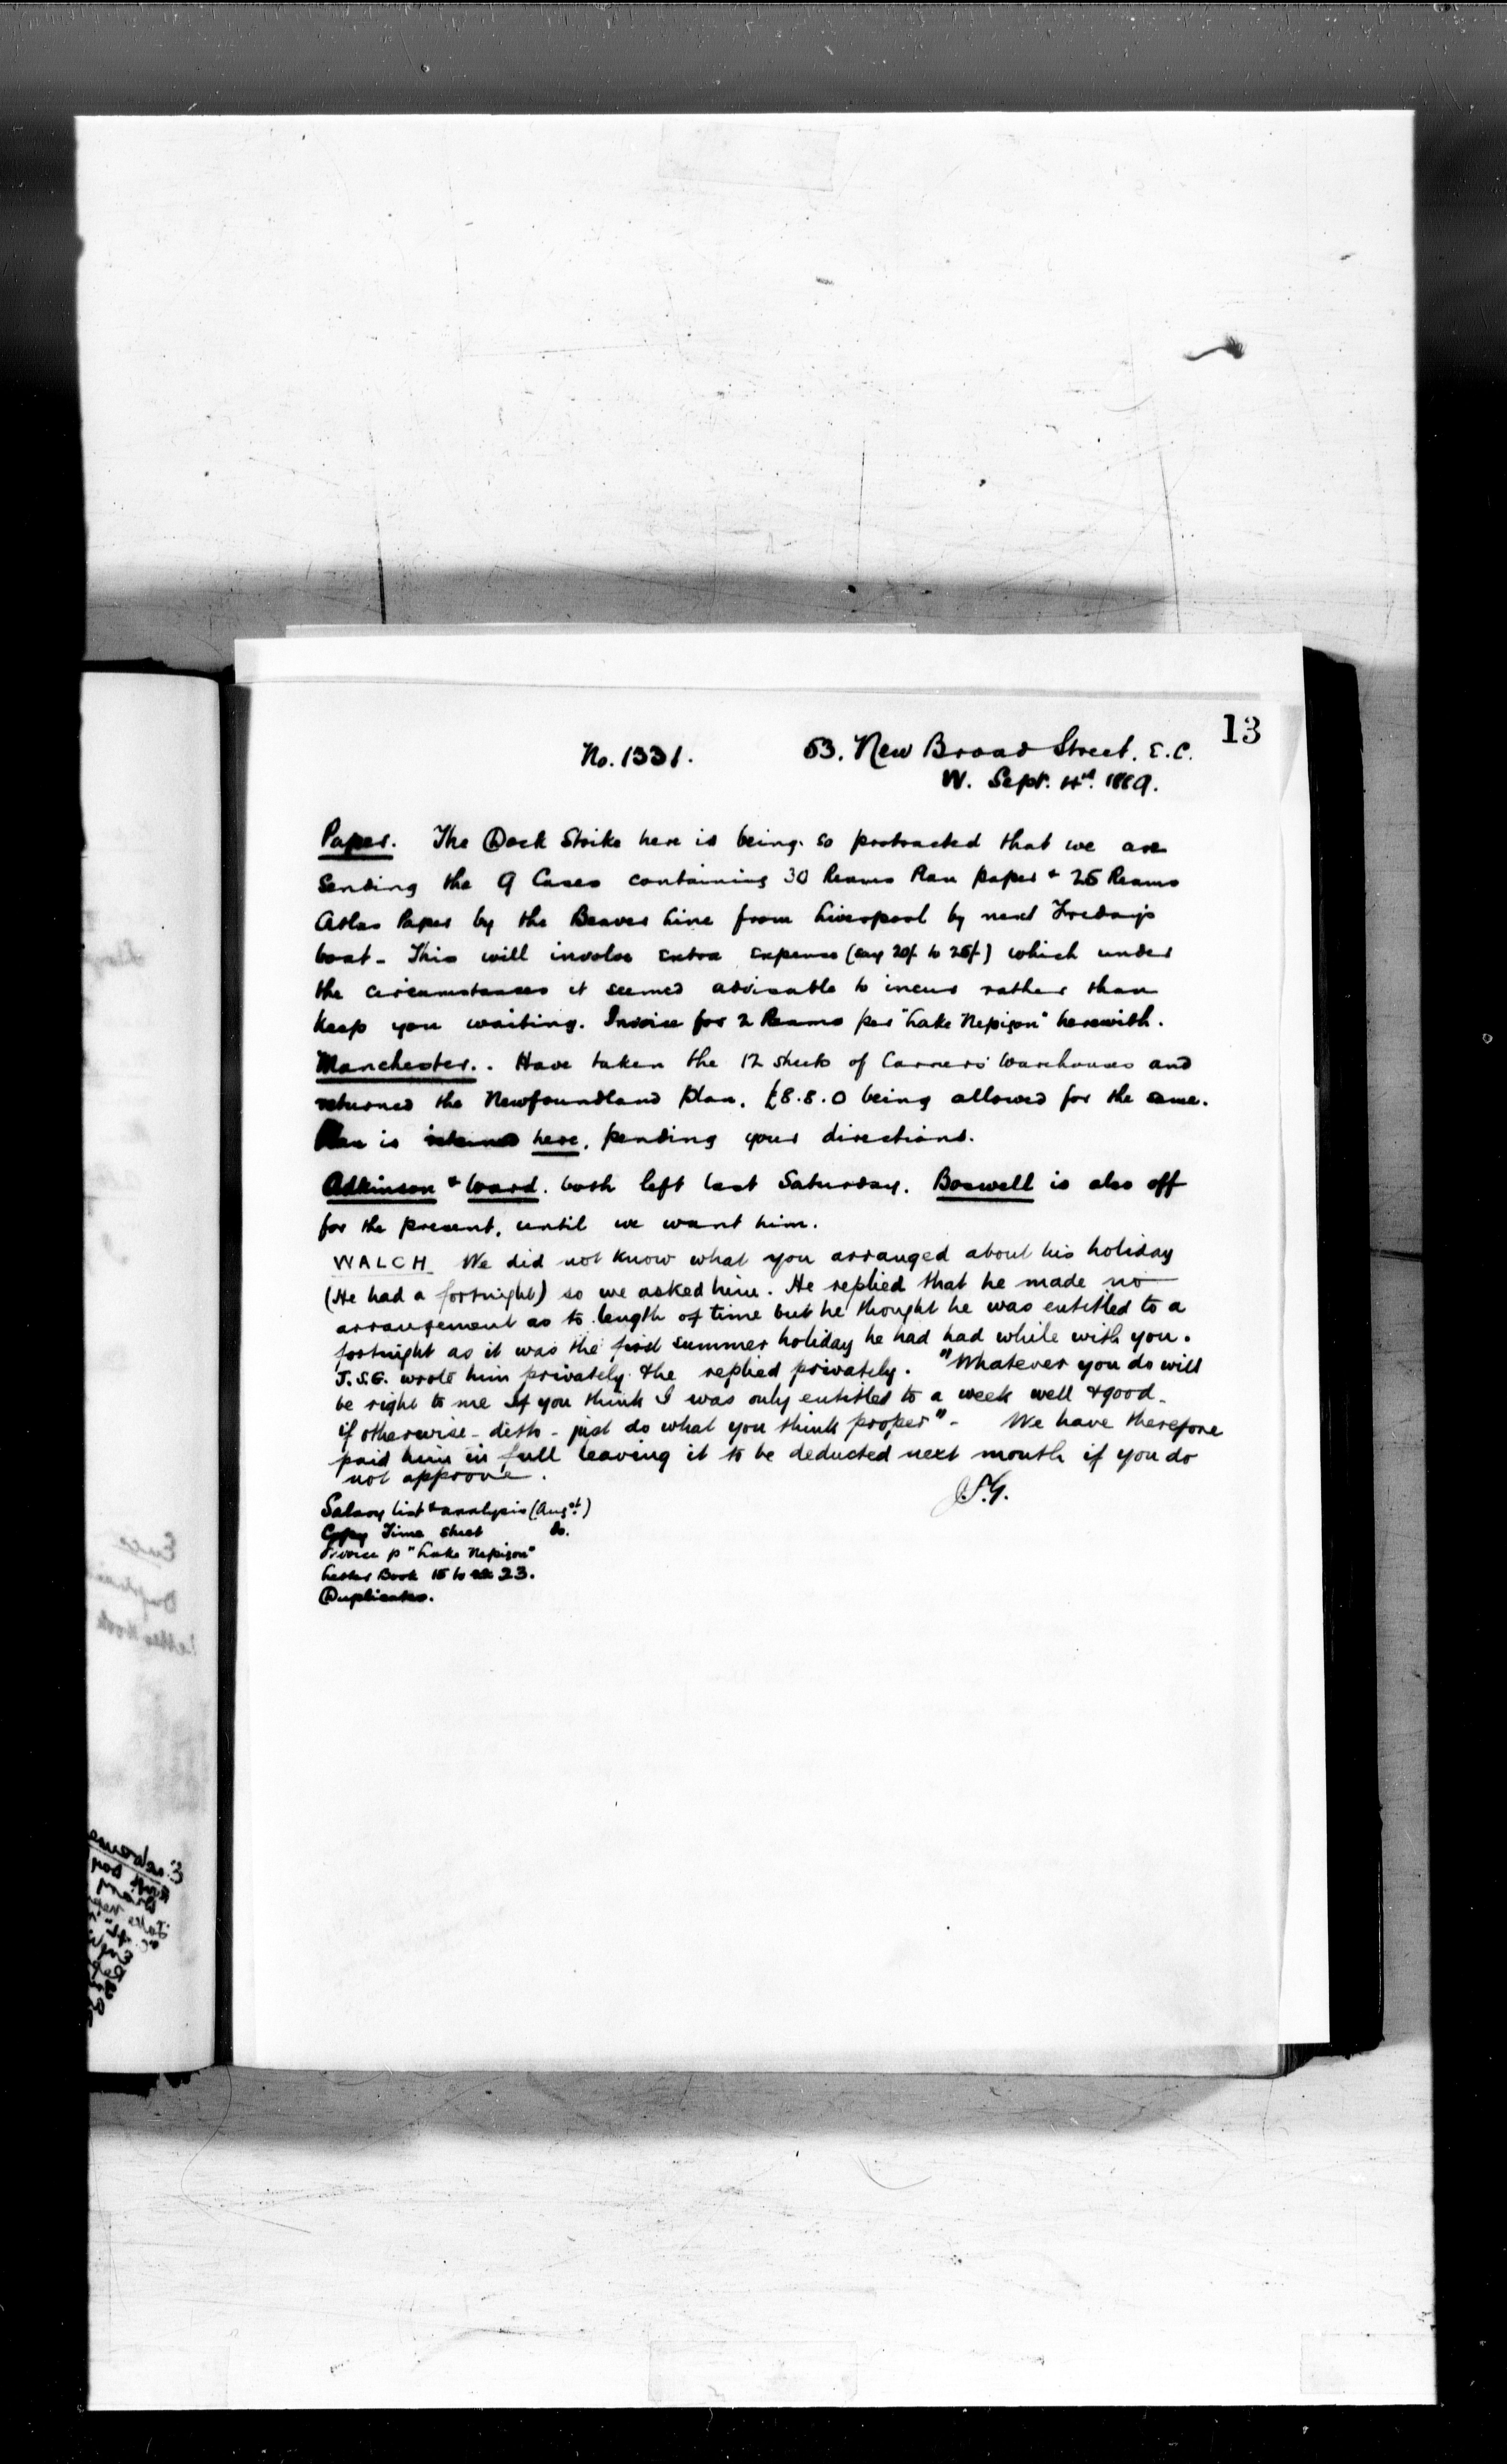 13
No. 1331. 53. New Broad Street. E.C.
W. Sept. 4th. 1889.
Paper. The Dock Strike here is being so protracted that we are
sending the 9 Cases containing 30 Reams Plan paper & 25 Reams
Atlas Paper by the Beaver Line from Liverpool by next Friday's
boat - This will involve extra expense (say 20/- to 25/-) which under
the circumstances it seemed advisable to incur rather than
keep you waiting. Invoice for 2 Reams per "Lake Nepigon" herewith.
Manchester. . Have taken the 12 sheets of Carriers' Warehouses and
returned the Newfoundland Plan, £8.8.0 being allowed for the same.
Plan is retained here, pending your directions.
Adkinson & Ward. both left last Saturday. Boswell is also off
for the present, until we want him.
WALCH We did not know what you arranged about his holiday
(He had a fortnight) so we asked him. He replied that he made no
arrangement as to length of time but he thought he was entitled to a
fortnight as it was the first summer holiday he had had while with you.
J.S.G. wrote him privately & he replied privately. "Whatever you do will
be right to me If you think I was only entitled to a week well & good -
if otherwise - ditto - just do what you think proper" - We have therefore
paid him in full leaving it to be deducted next month if you do
not approve.
J.S.G.
Salary list & analysis (Augst.)
Copy Time Sheet Do.
Invoice p "Lake Nepigon"
Letter Book 15 to 23.
Duplicates.